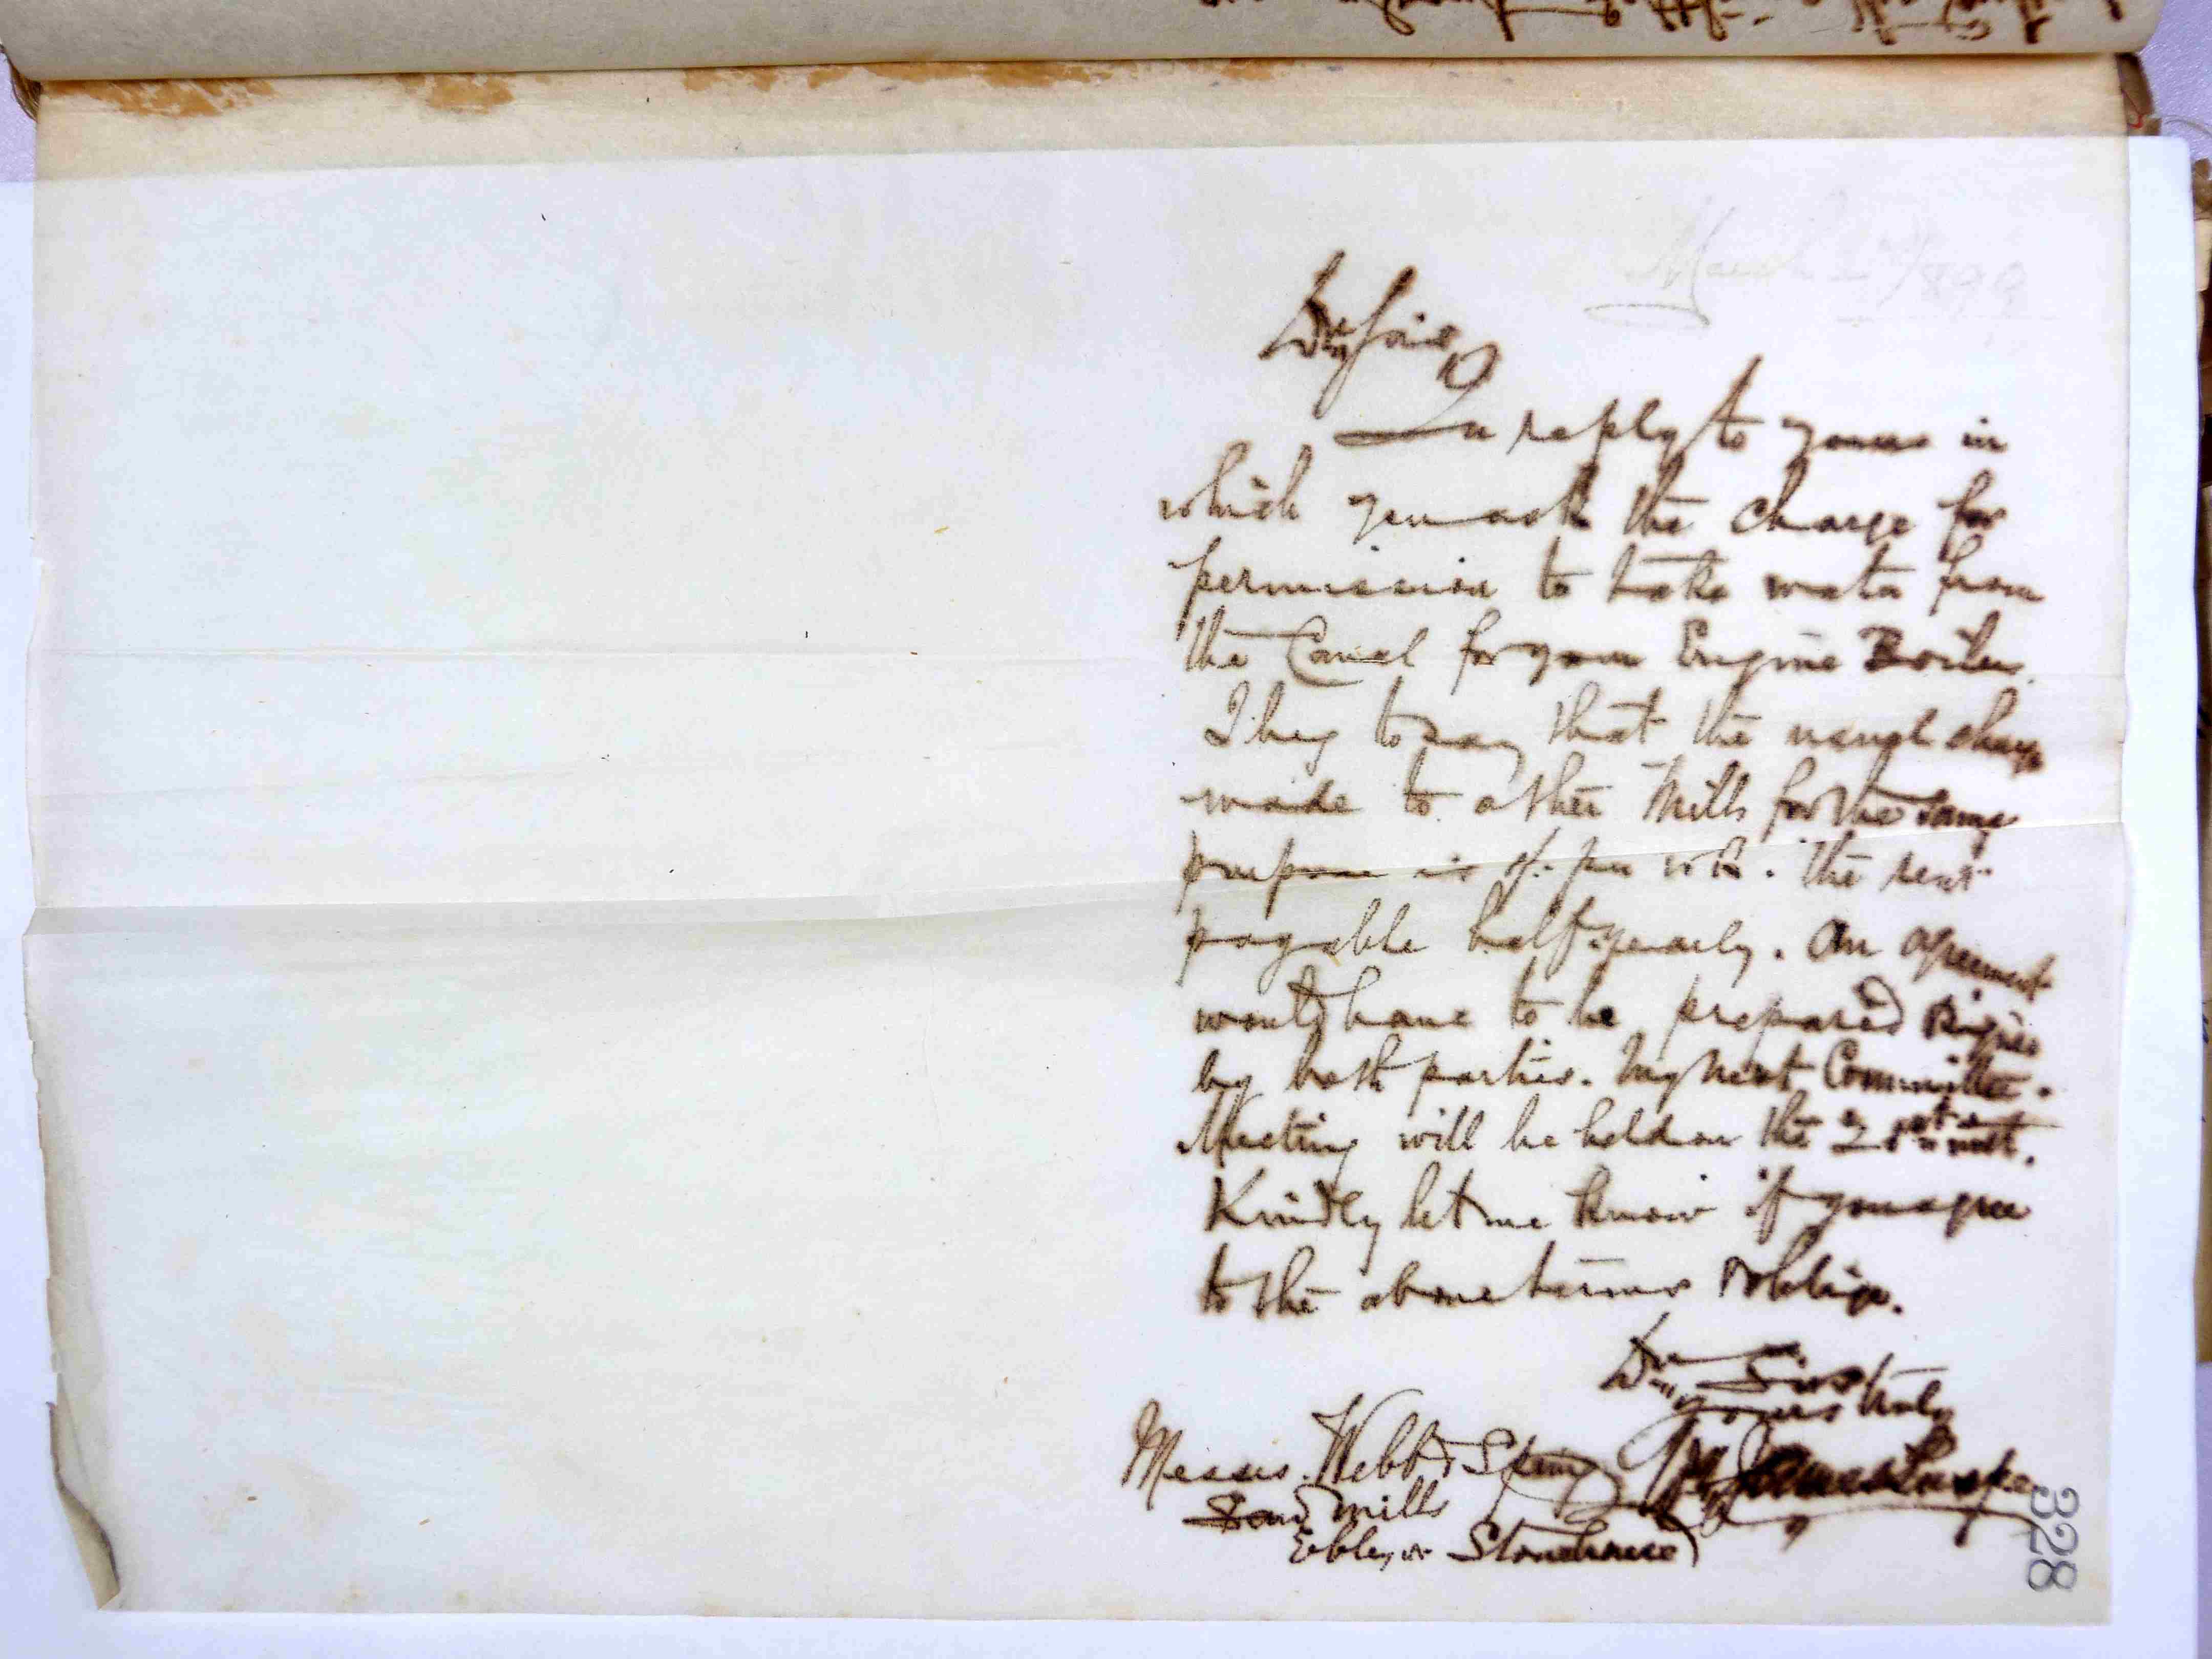 March 2 1899
Dear Sirs
In reply to yours in
which you ask the charge for
permission to take water from
the Canal for your Engine Boiler.
I beg to say that the usual charge
made to other Mills for the same
purpose is per . The rent
payable half-yearly. An agreement
would have to be prepared & signed
by both parties. My next Committee
Meeting will be held on the inst.
Kindly let me know if you agree
to the above terms & oblige.
Dear Sirs
yours truly
Messrs. Webb & Spring
Mills
Ebley Stonehouse
328